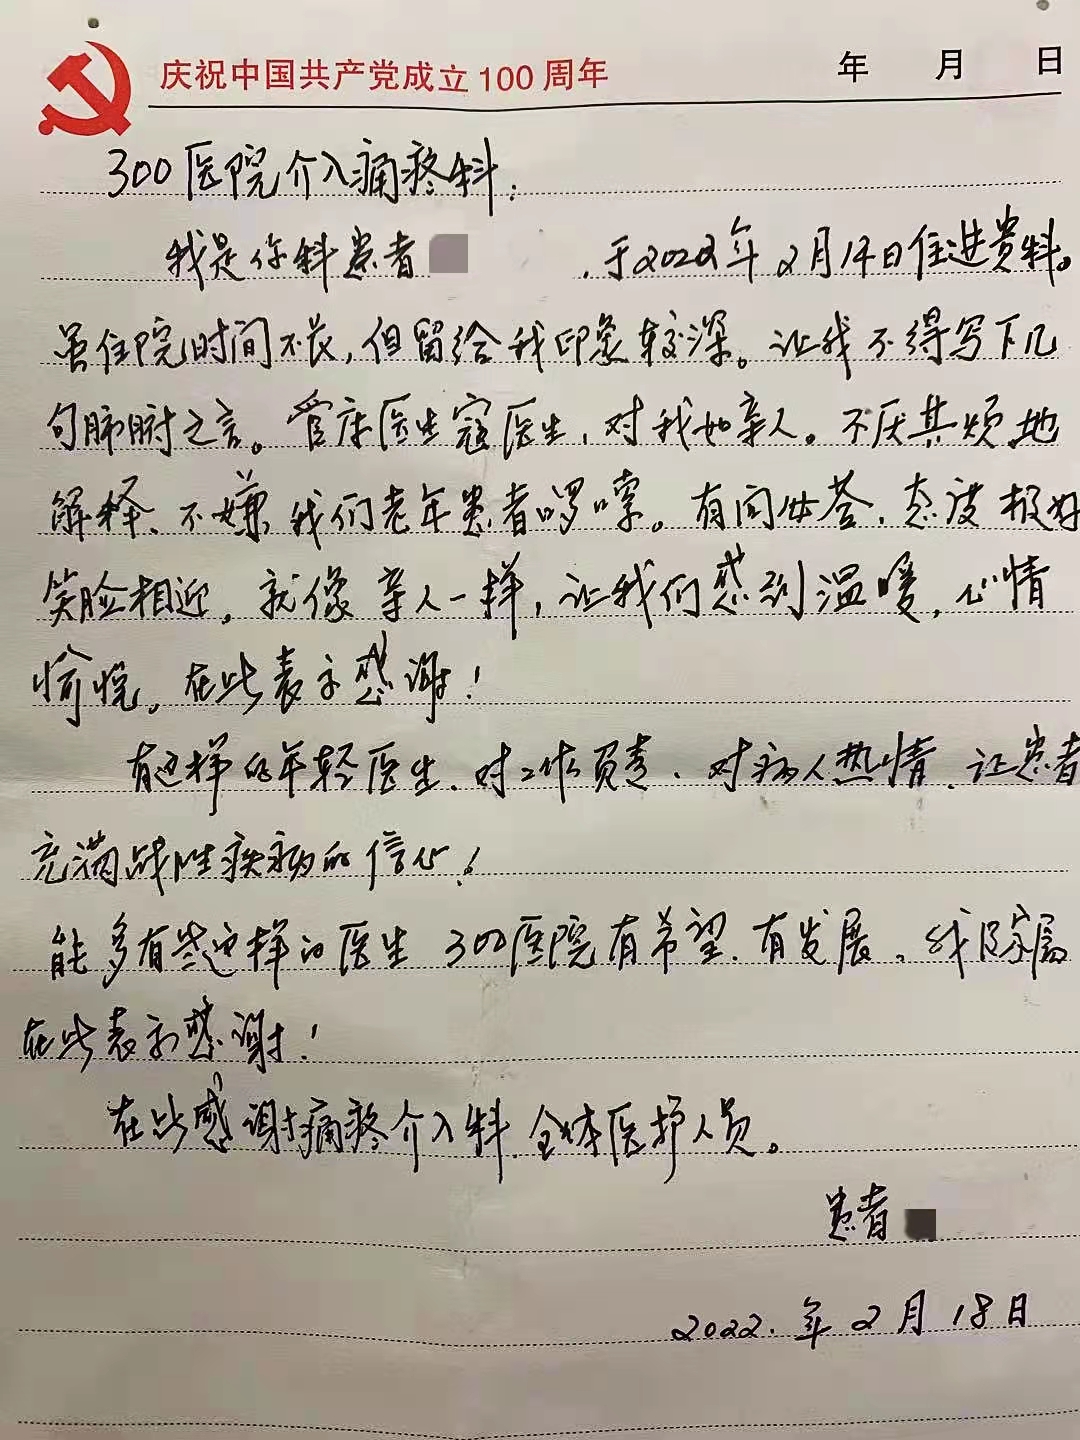 庆祝中国共产党成立100周年 年 月 日
300医院介入痛疼科:
我是你科患者 ,于2022年2月14日住进贵科。
虽住院时间不长,但留给我印象较深。让我不得写下几
句肺腑之言。管床医生寇医生,对我如亲人。不厌其烦地
解释、不嫌我们老年患者啰嗦。有问必答,态度极好
笑脸相迎,就像亲人一样,让我们感到温暖,心情
愉悦。在此表示感谢!
有这样的年轻医生、对工作负责、对病人热情、让患者
充满战胜疾病的信心!
能多有些这样的医生 300医院有希望、有发展。
在此表示感谢!
在此感谢痛疼介入科全体医护人员。
患者
2022.年2月18日